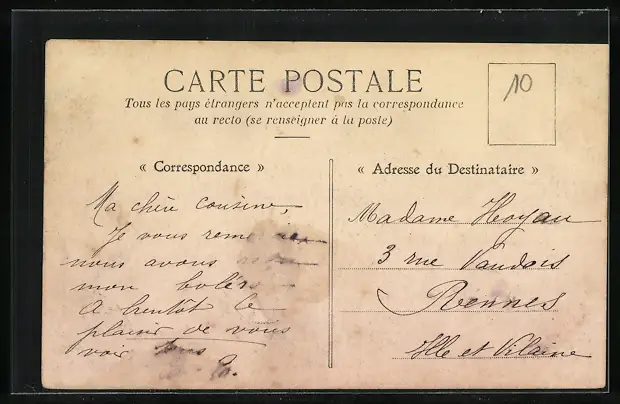 CARTE POSTALE
Tous les pays étrangers n'acceptent pas la correspondance
au recto (se renseigner à la poste)
10
« Correspondance »
Ma chère cousine,
Je vous
nous avons
mon
A bientôt le
plaisir de vous
voir
« Adresse du Destinataire »
Madame Hoyau
3 rue Vaudois
Rennes
Ille et Vilaine